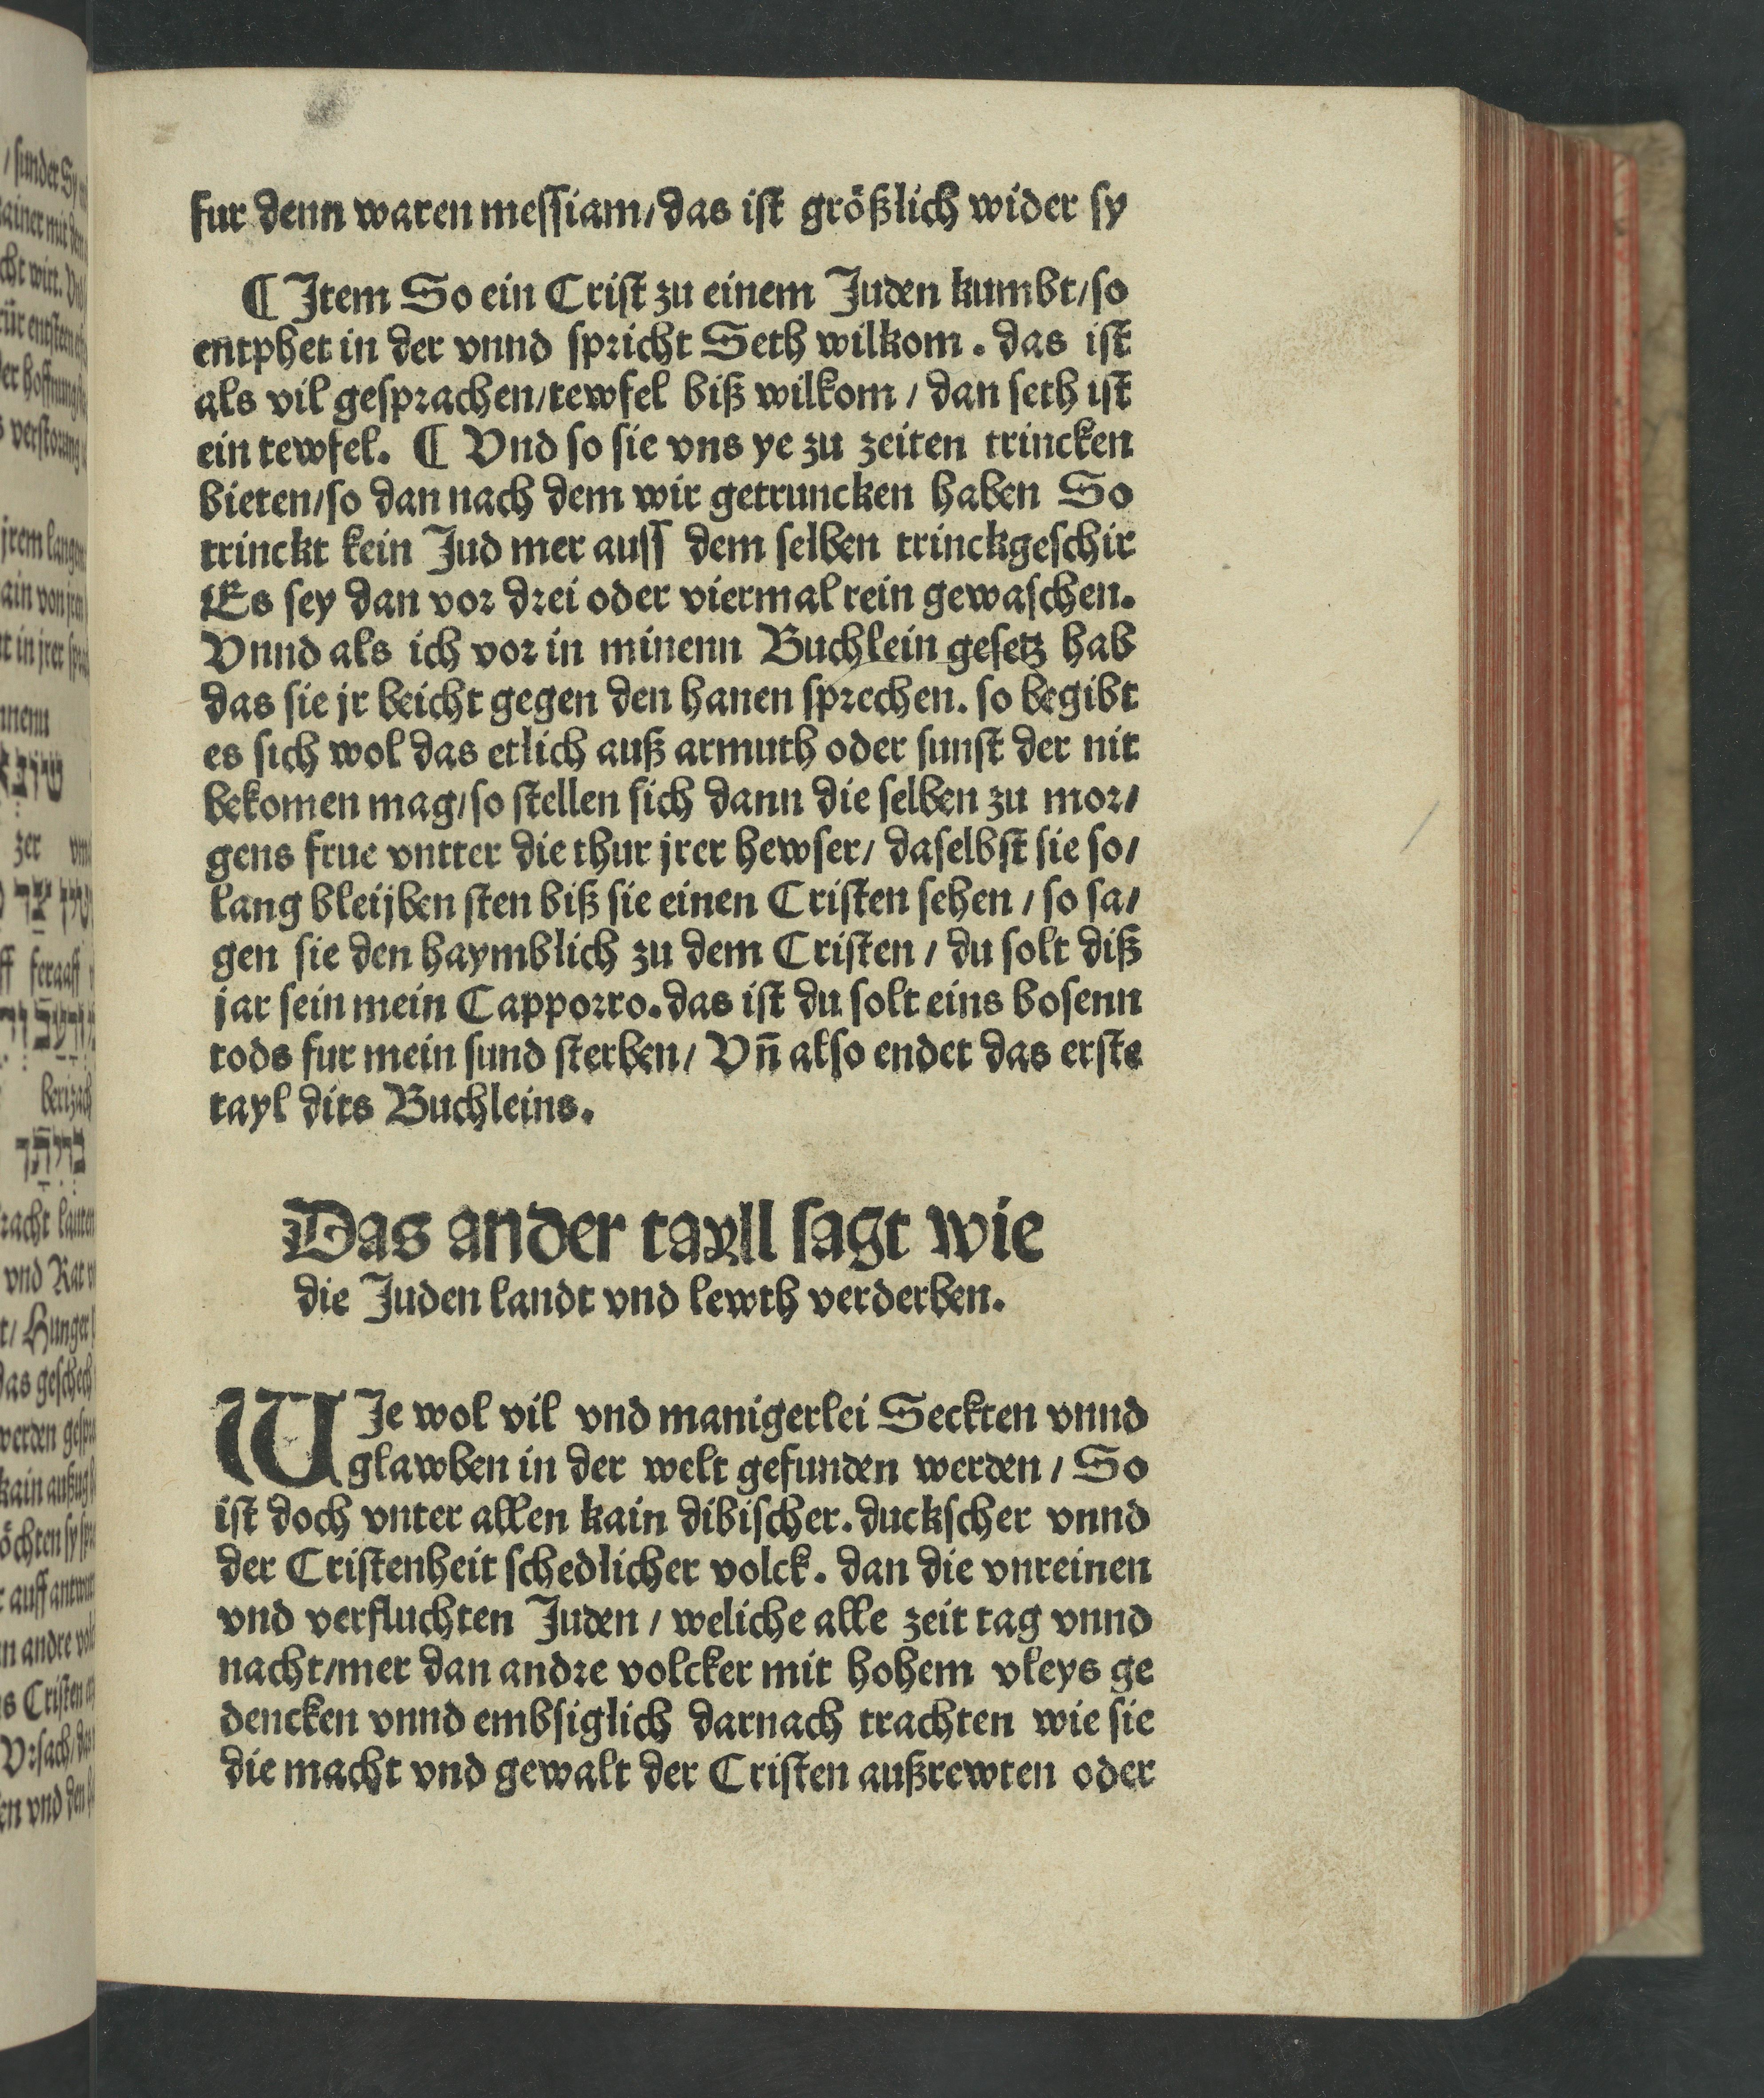 fur denn waren messiam/das ist größlich wider sy
¶ Jtem So ein Crist zu einem Juden kumbt/so
entphet in der vnnd spricht Seth wilkom. das ist
als vil gesprachen/tewfel biß wilkom / dan seth ist
ein tewfel. ¶ Vnd so sie vns ye zu zeiten trincken
bieten/so dan nach dem wir getruncken haben So
trinckt kein Jud mer auss dem selben trinckgeschir
Es sey dan vor drei oder viermal rein gewaschen.
Vnnd als ich vor in minenn Buchlein gesetz hab
das sie jr beicht gegen den hanen sprechen. so begibt
es sich wol das etlich auß armuth oder sunst der nit
bekomen mag/so stellen sich dann die selben zu mor/
gens frue vntter die thur jrer hewser/ daselbst sie so/
lang bleijben sten biß sie einen Cristen sehen / so sa/
gen sie den haymblich zu dem Cristen / du solt diß
jar sein mein Capporro. das ist du solt eins bosenn
tods fur mein sund sterben/ Vn̄ also endet das erste
tayl dits Buchleins.
Das ander tayll sagt wie
die Juden landt vnd lewth verderben.
WJe wol vil vnd manigerlei Seckten vnnd
glawben in der welt gefunden werden / So
ist doch vnter allen kain dibischer. duckscher vnnd
der Cristenheit schedlicher volck. dan die vnreinen
vnd verfluchten Juden / weliche alle zeit tag vnnd
nacht/mer dan andre volcker mit hohem vleys ge
dencken vnnd embsiglich darnach trachten wie sie
die macht vnd gewalt der Cristen außrewten oder